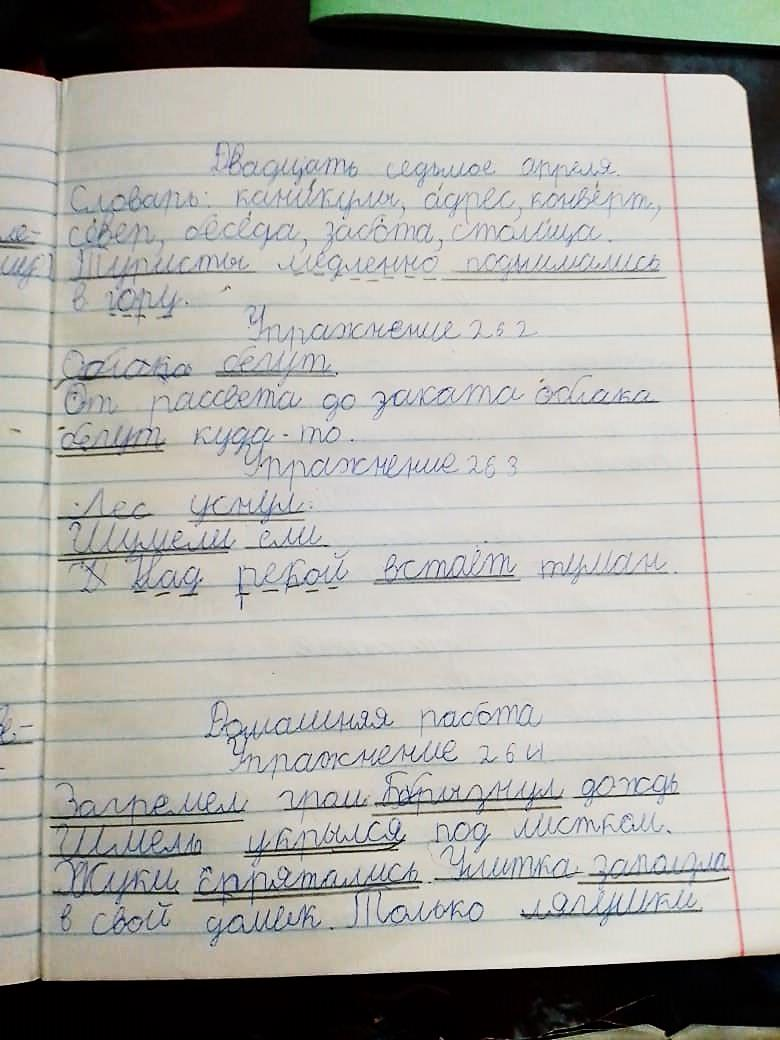 Двадцать седьмое апреля.
Словарь: каникулы, адрес, конверт,
север, беседа, забота, столица.
Туристы медленно поднимались
в гору.
Упражнение 262
Облака бегут.
От рассвета до заката облака
бегут куда-то.
Упражнение 263
Лес уснул.
Шумели ели
Над рекой встаёт туман.
Домашняя работа
Упражнение 264
Загремел гром Побрызнул дождь
Шмель укрылся под листком.
Жуки спрятались. Улитка заползла
в свой домик. Только лягушки
ле-